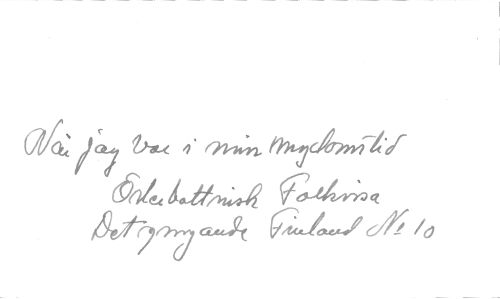 När jag var i min ungdomstid
Österbottnisk Folkvisa
Det sjungande Finland No 10